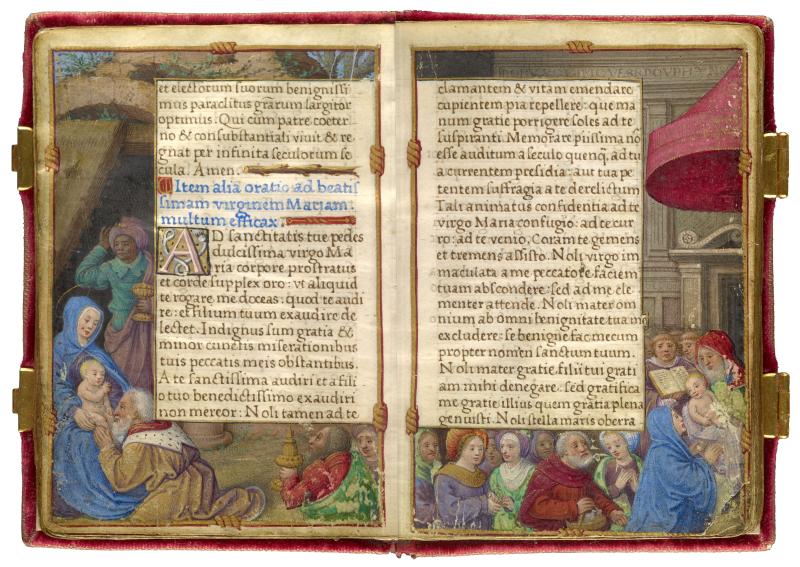 et electorum suorum benignissi
mus paraclitus grãrum largitor
optimus: Qui cum patre coeter
no & consubstantiali viuit & re
gnat per infinita seculorum se
cula. Amen.
Item alia oratio ad beatis
simam virginem Mariam
multum efficax
AD sanctitatis tue pedes
dulcissima virgo Ma
ria corpore prostratus
et corde supplex oro: vt aliquid
te rogare me doceas: quod te audi
re: et filium tuum exaudire de
lectet. Indignus sum gratia &
minor cunctis miserationibus
tuis peccatis meis obstantibus.
A te sanctissima audiri et a fili
o tuo benedictissimo exaudiri
non mereor: Noli tamen ad te
clamantem & vitam emendare
cupientem pia repellere: que ma
num gratie porrigere soles ad te
suspiranti. Memorare piissima nõ
esse auditum a seculo quenq̃, ad tu
a currentem presidia: aut tua pe
tentem suffragia a te derelictum
Tali animatus confidentia ad te
virgo Maria confugio: ad te cur
ro: ad te venio. Coram te gemens
et tremens assisto. Noli virgo im
maculata a me peccatore faciem
tuam abscondere: sed ad me cle
menter attende. Noli mater om
nium ab omni benignitate tua me
excludere: se benigne fac mecum
propter nomen sanctum tuum.
Noli mater gratie, filii tui grati
am mihi denegare: sed gratifica
me gratie illius quem gratia plena
genuisti. Noli stella maris oberra